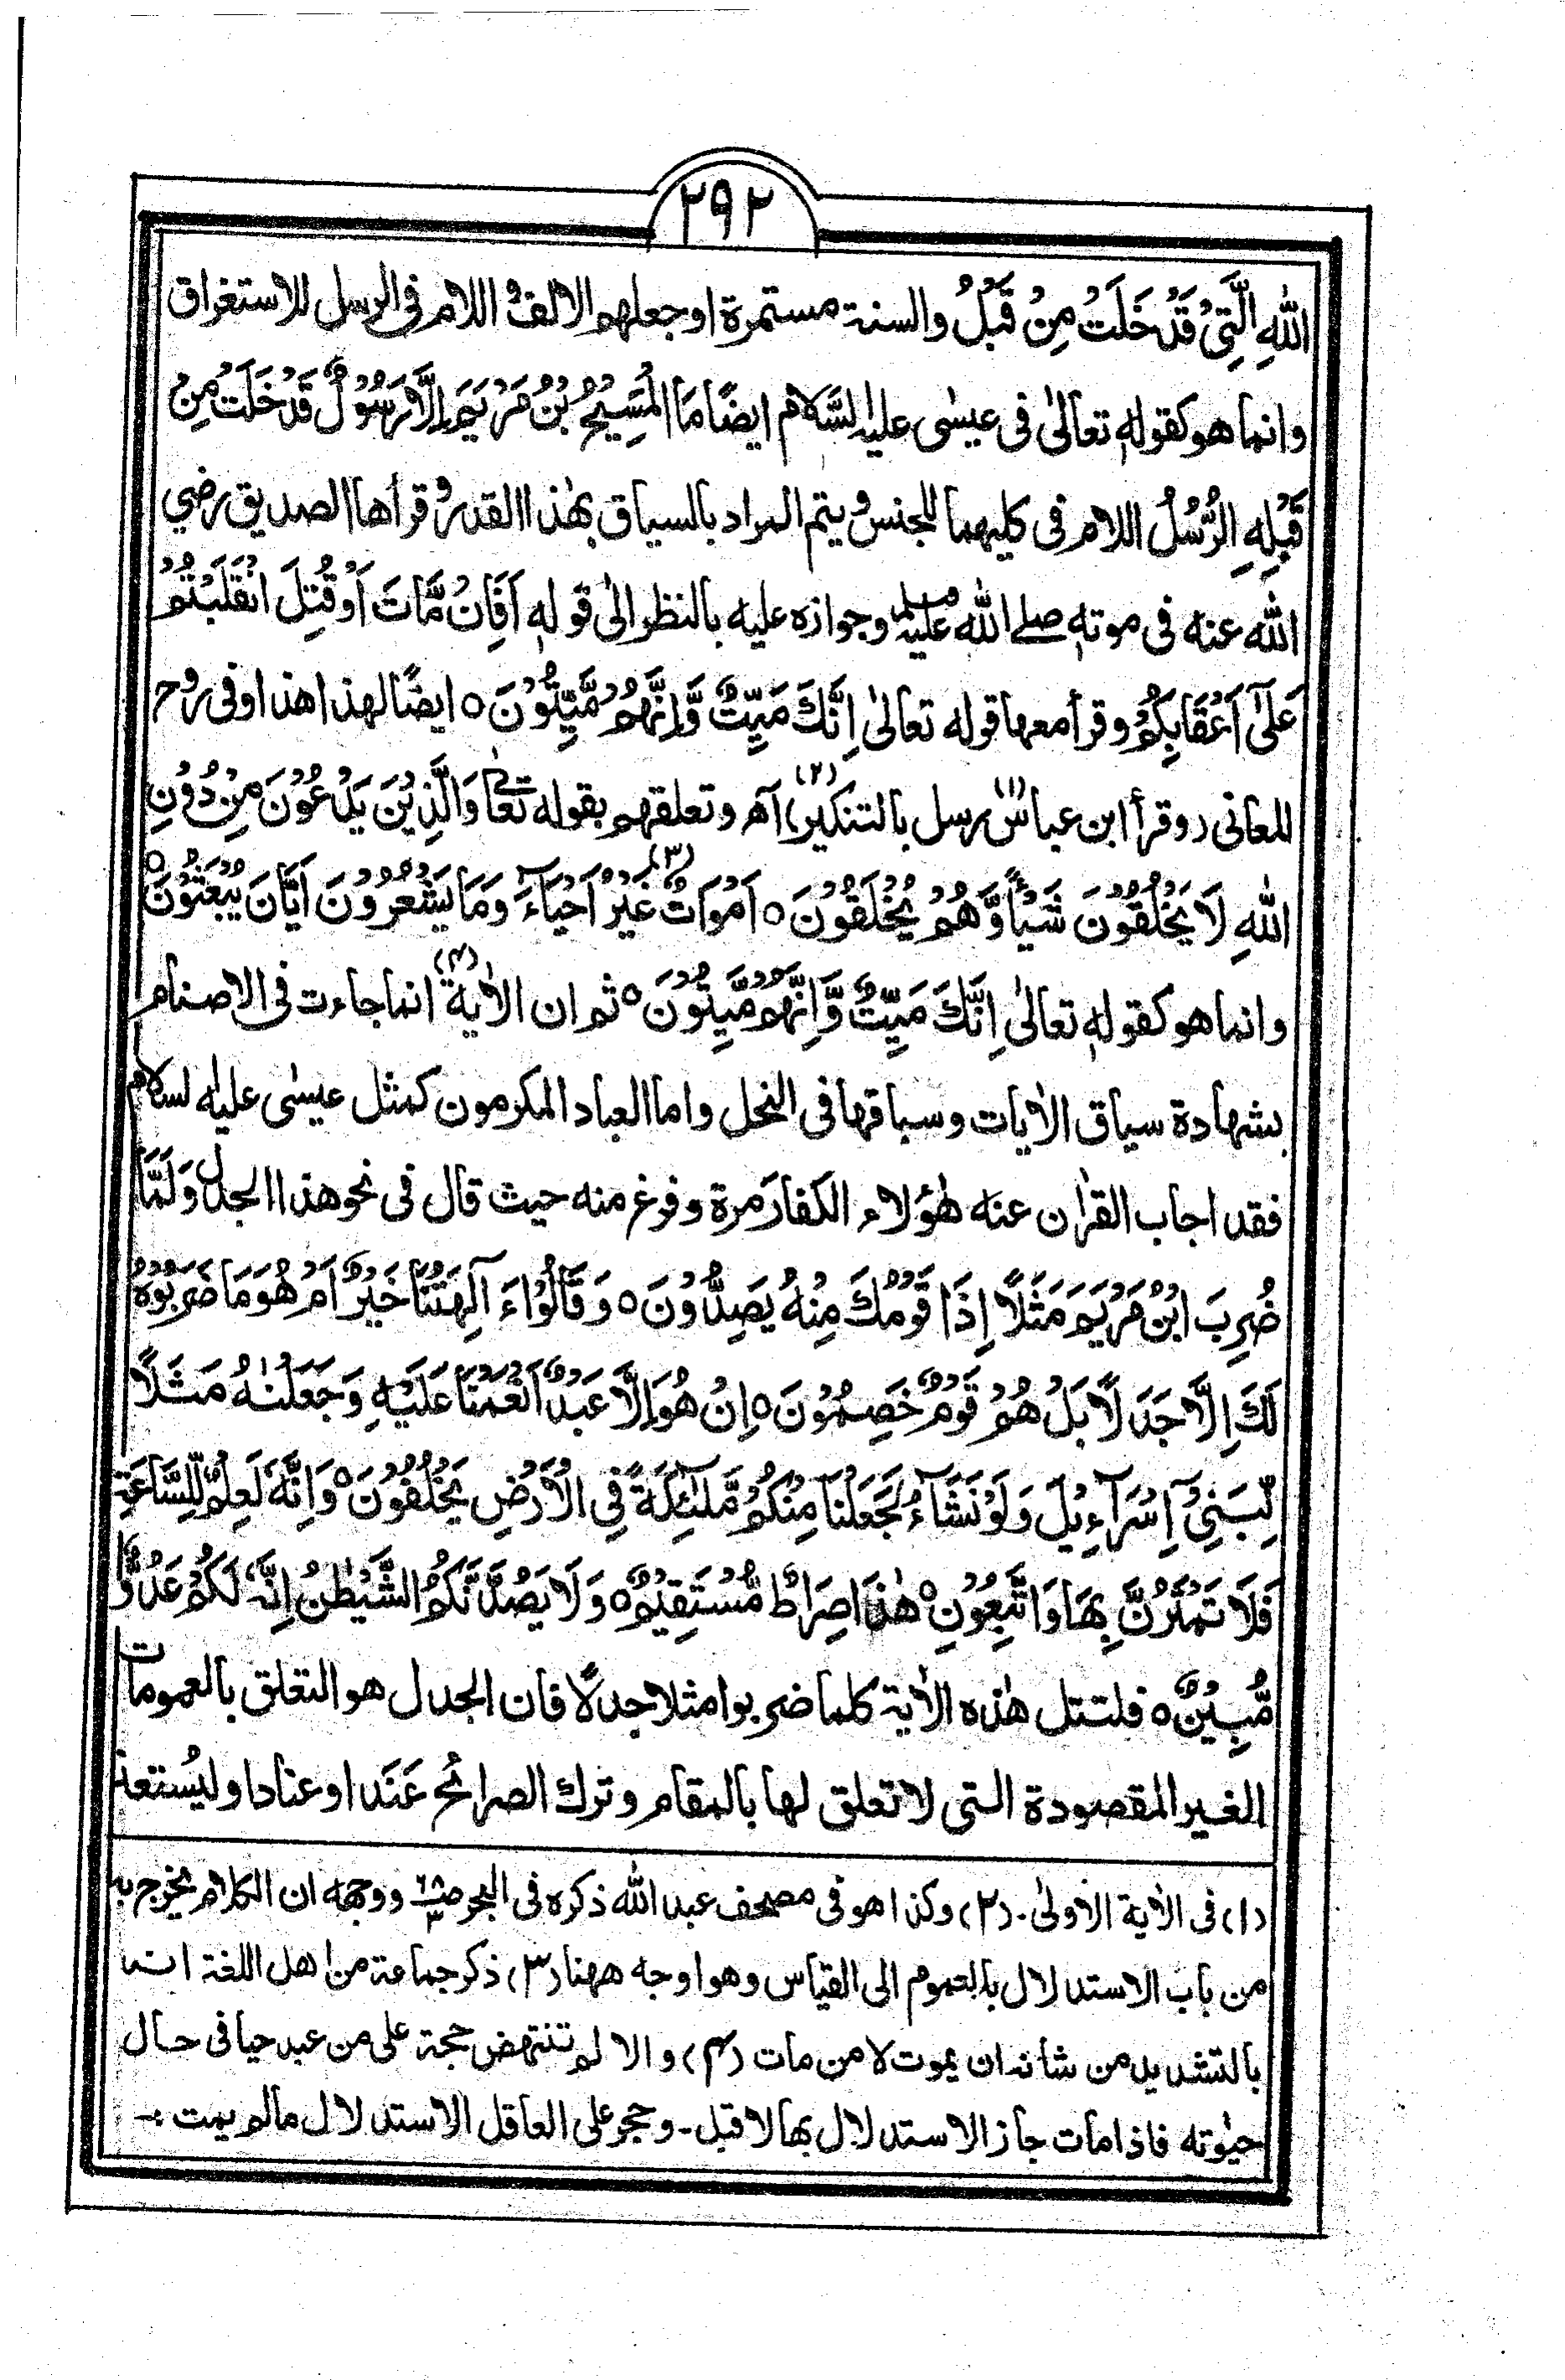 ۲۹۲
اللهِ الَّتِيْ قَدْ خَلَتْ مِنْ قَبْلُ والسنة مستمرة او جعلهم الالف و اللام فى الرسل للاستغراق
وانما هو كقوله تعالىٰ فى عيسٰى عليه السَّلام ايضًا مَا الْمَسِيْحُ بْنُ مَرْيَمَ اِلَّا رَسُوْلٌ قَدْ خَلَتْ مِنْ
قَبْلِهِ الرُّسُلُ اللام فى كليهما للجنس و يتم المراد بالسياق بهٰذا القدر و قرأها الصديق رضي
الله عنه فى موته صلے الله عليه وسلم وجوازه عليه بالنظر الىٰ قوله اَفَاِنْ مَّاتَ اَوْ قُتِلَ انْقَلَبْتُمْ
عَلٰٓى اَعْقَابِكُمْ وقرأ معها قوله تعالىٰ اِنَّكَ مَيِّتٌ وَّاِنَّهُمْ مَّيِّتُوْنَ ٥ ايضًا لهذا هذا وفى روح
المعانى (وقرأ ابن عباس (۱) رسل بالتنكير) (۲) اھ وتعلقهم بقوله تعالےٰ وَالَّذِيْنَ يَدْعُوْنَ مِنْ دُوْنِ
اللهِ لَا يَخْلُقُوْنَ شَيْأً وَّهُمْ يُخْلَقُوْنَ ٥ اَمْوَاتٌ (۳) غَيْرُ اَحْيَآءَ وَمَا يَشْعُرُوْنَ اَيَّانَ يُبْعَثُوْنَ ٥
وانما هو كقوله تعالىٰ اِنَّكَ مَيِّتٌ وَّاِنَّهُمْ مَّيِّتُوْنَ ٥ ثم ان الاٰية (۴) انما جاءت فى الاصنام
بشهادة سياق الاٰيات وسباقها فى النحل واما العباد المكرمون كمثل عيسٰى عليه لسلام
فقد اجاب القراٰن عنه هٰؤلاء الكفار مرة وفرغ منه حيث قال فى نحو هذا الجدل وَلَمَّا
ضُرِبَ ابْنُ مَرْيَمَ مَثَلًا اِذَا قَوْمُكَ مِنْهُ يَصِدُّوْنَ ٥ وَقَالُوْا ءَ اٰلِهَتُنَا خَيْرٌ اَمْ هُوَ مَا ضَرَبُوْهُ
لَكَ اِلَّا جَدَلًا بَلْ هُمْ قَوْمٌ خَصِمُوْنَ ٥ اِنْ هُوَ اِلَّا عَبْدٌ اَنْعَمْنَا عَلَيْهِ وَجَعَلْنٰهُ مَثَلًا
لِّبَنِيْٓ اِسْرَآءِيْلَ وَلَوْ نَشَآءُ لَجَعَلْنَا مِنْكُمْ مَّلٰٓئِكَةً فِي الْاَرْضِ يَخْلُفُوْنَ ٥ وَاِنَّهٗ لَعِلْمٌ لِّلسَّاعَةِ
فَلَا تَمْتَرُنَّ بِهَا وَاتَّبِعُوْنِ ٥ هٰذَا صِرَاطٌ مُّسْتَقِيْمٌ ٥ وَلَا يَصُدَّنَّكُمُ الشَّيْطٰنُ اِنَّهٗ لَكُمْ عَدُوٌّ
مُّبِيْنٌ ٥ فلتتل هٰذه الاٰية كلما ضربوا مثلا جدلًا فان الجدل هو التعلق بالعمومات
الغير المقصودة التى لا تعلق لها بالمقام وترك الصرائح عَنَدا وعنادا وليُستعذ
(۱) فى الاٰية الاولىٰ۔ (۲) وكذا هو فى مصحف عبد الله ذكره فى البحر ص۶۸/۳ ووجهه ان الكلام يخرج به
من باب الاستدلال بالعموم الى القياس وهو اوجه ههنا (۳) ذكر جماعة من اهل اللغة انه
بالتشديد من شانه ان يموت لا من مات (۴) والا لم تنتهض حجة على من عبد حيا فى حال
حيٰوته فاذا مات جاز الاستدلال بها لا قبل۔ وحجر على العاقل الاستدلال مالم يمت ۔